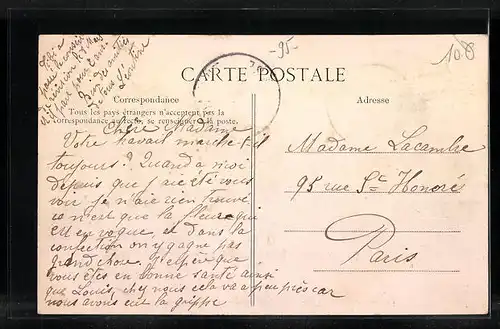 -95-
10 B
CARTE POSTALE
Correspondance
Tous les pays étrangers n'acceptent pas la
correspondance au recto, se renseigner à la poste.
Adresse
Chère Madame
Votre travail marche t-il
toujours ? Quand à moi
depuis que j'aie été vous
voir je n'aie rien trouvé
ce n'est que la fleur qui
est en vogue, et dans la
confection on y gagne pas
grand chose. J'espère que
vous êtes en bonne santé ainsi
que Louis, chez nous cela va à peu près car
nous avons eu la grippe
Madame Lacambre
95 rue St Honoré
Paris